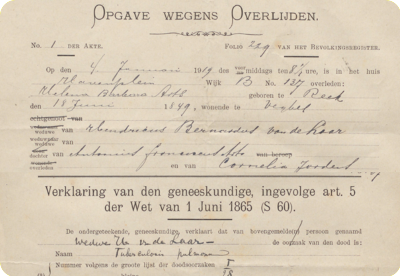 OPGAVE WEGENS OVERLIJDEN.
No. 1 DER AKTE. FOLIO 229 VAN HET BEVOLKINGSREGISTER.
Op den 4 Januari 1919 des middags ten 8½ ure, is in het huis
Wijk B No. 137 overleden:
Helena Barbara geboren te Reek
den 18 Juni 1849, wonende te Veghel
echtgenoot van
weduwe van Hendrikus Bernardus van de Laar
weduwnaar
dochter van Antonius Franciscus van beroep
en van Cornelia
Verklaring van den geneeskundige, ingevolge art. 5
der Wet van 1 Juni 1865 (S 60).
De ondergeteekende, geneeskundige, verklaart dat van bovengemelden persoon genaamd
weduwe v. de Laar de oorzaak van den dood is:
Naam Tuberculosis pulmonum
Nummer volgens de groote lijst der doodsoorzaken